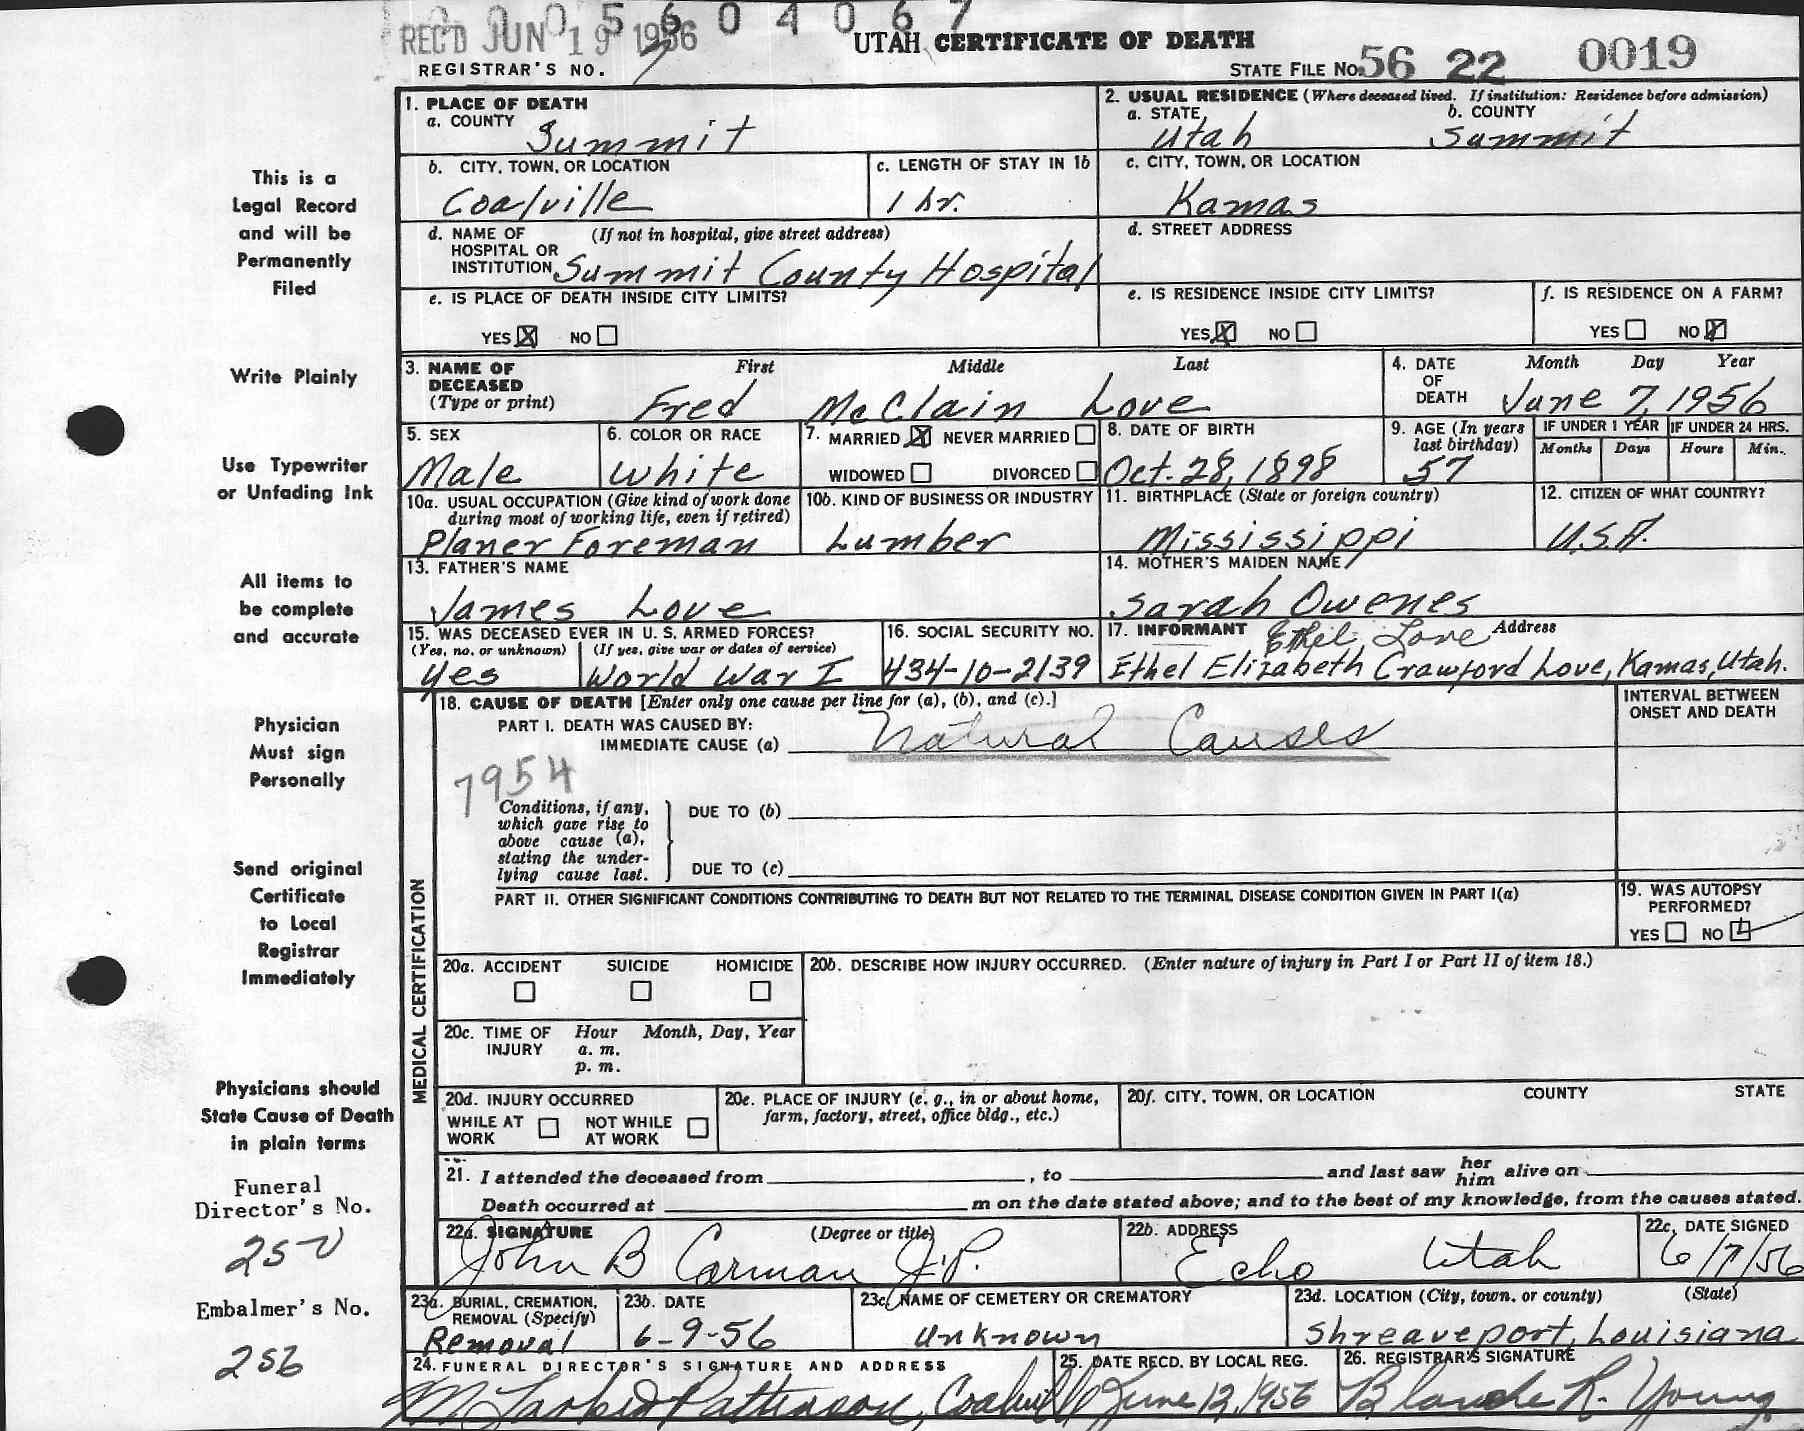 0 0 0 5 6 0 4 0 6 7
REC'D JUN 19 1956
UTAH CERTIFICATE OF DEATH
REGISTRAR'S NO. 7
STATE FILE No. 56 22 0019
This is a
Legal Record
and will be
Permanently
Filed
Write Plainly
Use Typewriter
or Unfading Ink
All items to
be complete
and accurate
Physician
Must sign
Personally
Send original
Certificate
to Local
Registrar
Immediately
Physicians should
State Cause of Death
in plain terms
Funeral
Director's No.
252
Embalmer's No.
256
1. PLACE OF DEATH
a. COUNTY Summit
2. USUAL RESIDENCE (Where deceased lived. If institution: Residence before admission)
a. STATE Utah b. COUNTY Summit
b. CITY, TOWN, OR LOCATION Coalville
c. LENGTH OF STAY IN 1b 1 hr.
c. CITY, TOWN, OR LOCATION Kamas
d. NAME OF (If not in hospital, give street address)
HOSPITAL OR
INSTITUTION Summit County Hospital
d. STREET ADDRESS
e. IS PLACE OF DEATH INSIDE CITY LIMITS?
YES X NO
e. IS RESIDENCE INSIDE CITY LIMITS?
YES X NO
f. IS RESIDENCE ON A FARM?
YES NO X
3. NAME OF DECEASED (Type or print)
First Middle Last
Fred McClain Love
4. DATE OF DEATH Month Day Year
June 7, 1956
5. SEX Male
6. COLOR OR RACE White
7. MARRIED X NEVER MARRIED
WIDOWED DIVORCED
8. DATE OF BIRTH Oct. 28, 1898
9. AGE (In years last birthday) 57
IF UNDER 1 YEAR Months Days
IF UNDER 24 HRS. Hours Min.
10a. USUAL OCCUPATION (Give kind of work done during most of working life, even if retired)
Planer Foreman
10b. KIND OF BUSINESS OR INDUSTRY
Lumber
11. BIRTHPLACE (State or foreign country)
Mississippi
12. CITIZEN OF WHAT COUNTRY?
U.S.A.
13. FATHER'S NAME
James Love
14. MOTHER'S MAIDEN NAME
Sarah Owenes
15. WAS DECEASED EVER IN U. S. ARMED FORCES?
(Yes, no, or unknown) (If yes, give war or dates of service)
Yes World War I
16. SOCIAL SECURITY NO.
434-10-2139
17. INFORMANT Ethel Love Address
Ethel Elizabeth Crawford Love, Kamas, Utah.
MEDICAL CERTIFICATION
18. CAUSE OF DEATH [Enter only one cause per line for (a), (b), and (c).]
INTERVAL BETWEEN ONSET AND DEATH
PART I. DEATH WAS CAUSED BY:
IMMEDIATE CAUSE (a) Natural Causes
7954
Conditions, if any,
which gave rise to
above cause (a),
stating the under-
lying cause last.
DUE TO (b)
DUE TO (c)
PART II. OTHER SIGNIFICANT CONDITIONS CONTRIBUTING TO DEATH BUT NOT RELATED TO THE TERMINAL DISEASE CONDITION GIVEN IN PART I(a)
19. WAS AUTOPSY PERFORMED?
YES NO
20a. ACCIDENT SUICIDE HOMICIDE
20b. DESCRIBE HOW INJURY OCCURRED. (Enter nature of injury in Part I or Part II of item 18.)
20c. TIME OF INJURY Hour Month, Day, Year
a. m.
p. m.
20d. INJURY OCCURRED
WHILE AT WORK NOT WHILE AT WORK
20e. PLACE OF INJURY (e. g., in or about home,
farm, factory, street, office bldg., etc.)
20f. CITY, TOWN, OR LOCATION COUNTY STATE
21. I attended the deceased from , to and last saw her him alive on
Death occurred at m on the date stated above; and to the best of my knowledge, from the causes stated.
22a. SIGNATURE (Degree or title)
John B Carman J.P.
22b. ADDRESS
Echo Utah
22c. DATE SIGNED
6/7/56
23a. BURIAL, CREMATION, REMOVAL (Specify)
Removal
23b. DATE
6-9-56
23c. NAME OF CEMETERY OR CREMATORY
Unknown
23d. LOCATION (City, town, or county) (State)
Shreaveport, Louisiana
24. FUNERAL DIRECTOR'S SIGNATURE AND ADDRESS
Coalville
25. DATE RECD. BY LOCAL REG.
June 12, 1956
26. REGISTRAR'S SIGNATURE
Blanche R. Young